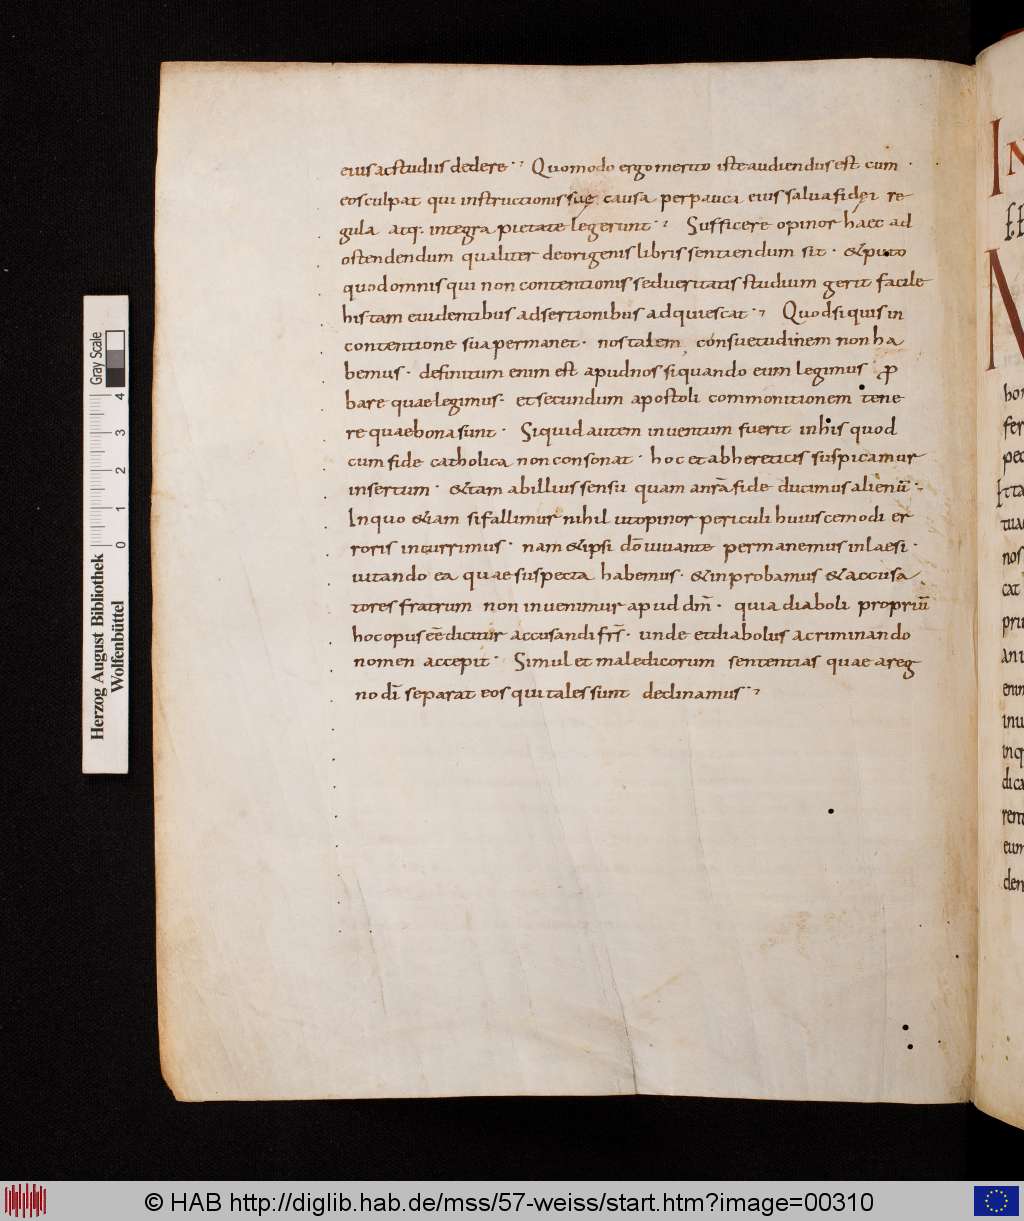 eius ac studiis dedere · Quomodo ergo merito iste audiendus est cum ·
eos culpat qui instructionis suę causa perpauca eius salua fidei re
gula atq· integra pietate legerunt · Sufficere opinor haec ad
ostendendum qualiter de origenis libris sentiendum sit · & puto
quod omnis qui non contentionis sed ueritatis studium gerit facile
his tam euidentibus adsertionibus adquiescat · Quod si quis in
contentione sua permanet · nos talem consuetudinem non ha
bemus · definitum enim est apud nos si quando eum legimus ꝓ
bare quae legimus · et secundum apostoli commonitionem tene
re quae bona sunt · Siquid autem inuentum fuerit in his quod
cum fide catholica non consonat · hoc et ab hereticis suspicamur
insertum · & tam ab illius sensu quam a nr̄a fide ducimus alienū ·
In quo &iam si fallimur nihil ut opinor periculi huiuscemodi er
roris incurrimus · nam & ipsi dō iuuante permanemus inlaesi ·
uitando ea quae suspecta habemus · & inprobamus & accusa
tores fratrum non inuenimur apud dm̄ · quia diaboli propriū
hoc opus eē dicitur accusandi frs̄ · unde et diabolus a criminando
nomen accepit · Simul et maledicorum sententias quae a reg
no dī separat eos qui tales sunt declinamus ·
Herzog August Bibliothek
Wolfenbüttel
Gray Scale
0 1 2 3 4
© HAB http://diglib.hab.de/mss/57-weiss/start.htm?image=00310